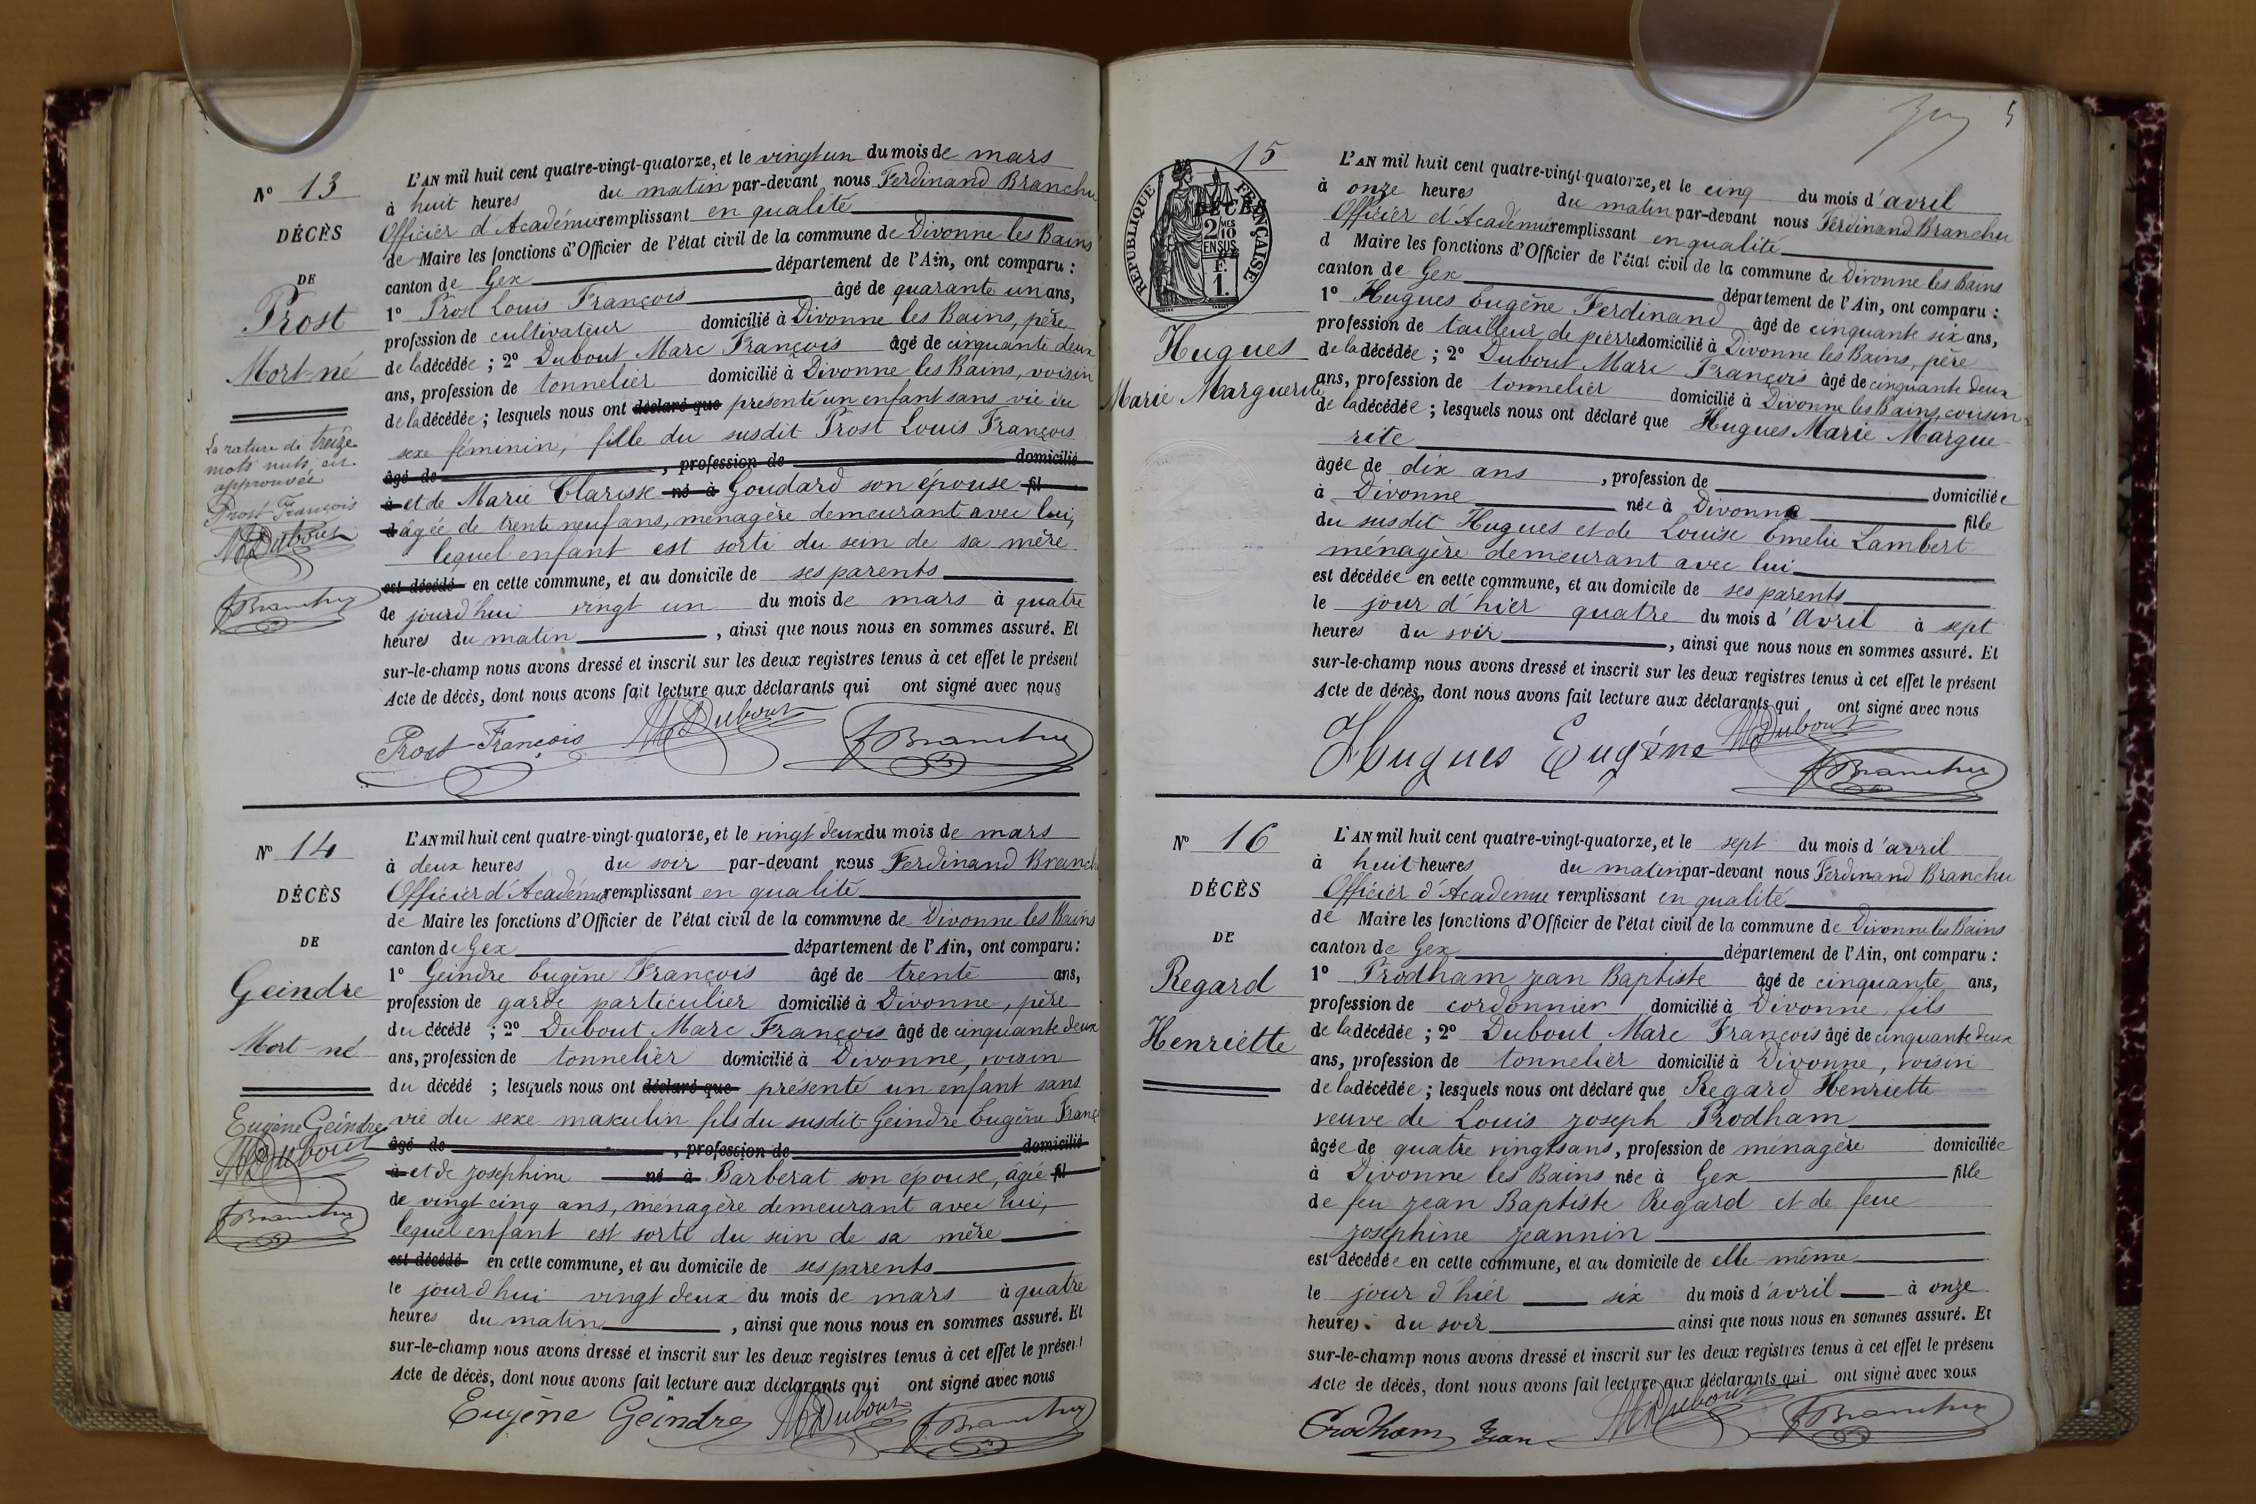 N° 13
DÉCÈS
DE
Prost
Mort-né
La rature de treize
mots nuls, est
approuvée
Prost François
M Dubout
F Branchu
L'AN mil huit cent quatre-vingt-quatorze, et le vingt un du mois de mars
à huit heures du matin par-devant nous Ferdinand Branchu
Officier d'Académie remplissant en qualité
de Maire les fonctions d'Officier de l'état civil de la commune de Divonne les Bains
canton de Gex département de l'Ain, ont comparu :
1° Prost Louis François âgé de quarante un ans,
profession de cultivateur domicilié à Divonne les Bains, père
de la décédée ; 2° Dubout Marc François âgé de cinquante deux
ans, profession de tonnelier domicilié à Divonne les Bains, voisin
de la décédée ; lesquels nous ont déclaré que présenté un enfant sans vie du
sexe féminin, fille du susdit Prost Louis François
âgé de , profession de domicilié
à et de Marie Clarisse né à Goudard son épouse fil
d âgée de trente neuf ans, ménagère demeurant avec lui,
lequel enfant est sorti du sein de sa mère
est décédé en cette commune, et au domicile de ses parents
de jourd'hui vingt un du mois de mars à quatre
heures du matin , ainsi que nous nous en sommes assuré. Et
sur-le-champ nous avons dressé et inscrit sur les deux registres tenus à cet effet le présent
Acte de décès, dont nous avons fait lecture aux déclarants qui ont signé avec nous
Prost François M Dubout F Branchu
N° 14
DÉCÈS
DE
Geindre
Mort-né
Eugène Geindre
M Dubout
F Branchu
L'AN mil huit cent quatre-vingt-quatorze, et le vingt deux du mois de mars
à deux heures du soir par-devant nous Ferdinand Branch
Officier d'Académie remplissant en qualité
de Maire les fonctions d'Officier de l'état civil de la commune de Divonne les Bains
canton de Gex département de l'Ain, ont comparu :
1° Geindre Eugène François âgé de trente ans,
profession de garde particulier domicilié à Divonne, père
du décédé ; 2° Dubout Marc François âgé de cinquante deux
ans, profession de tonnelier domicilié à Divonne, voisin
du décédé ; lesquels nous ont déclaré que présenté un enfant sans
vie du sexe masculin fils du susdit Geindre Eugène Franç
âgé de , profession de domicilié
à et de Joséphine né à Barberat son épouse, âgée fil
de vingt cinq ans, ménagère demeurant avec lui,
lequel enfant est sorti du sein de sa mère
est décédé en cette commune, et au domicile de ses parents
le jourd'hui vingt deux du mois de mars à quatre
heures du matin , ainsi que nous nous en sommes assuré. Et
sur-le-champ nous avons dressé et inscrit sur les deux registres tenus à cet effet le présent
Acte de décès, dont nous avons fait lecture aux déclarants qui ont signé avec nous
Eugène Geindre M Dubout F Branchu
5
15
RÉPUBLIQUE FRANÇAISE
DÉCÈS
2/10 MES
EN SUS
DE
F.
1.
Hugues
Marie Marguerite
L'AN mil huit cent quatre-vingt-quatorze, et le cinq du mois d'avril
à onze heures du matin par-devant nous Ferdinand Branchu
Officier d'Académie remplissant en qualité
d Maire les fonctions d'Officier de l'état civil de la commune de Divonne les Bains
canton de Gex département de l'Ain, ont comparu :
1° Hugues Eugène Ferdinand âgé de cinquante six ans,
profession de tailleur de pierre domicilié à Divonne les Bains, père
de la décédée ; 2° Dubout Marc François âgé de cinquante deux
ans, profession de tonnelier domicilié à Divonne les Bains, cousin
de la décédée ; lesquels nous ont déclaré que Hugues Marie Margue-
rite
âgée de dix ans , profession de domiciliée
à Divonne née à Divonne fille
du susdit Hugues et de Louise Emelie Lambert
ménagère demeurant avec lui
est décédée en cette commune, et au domicile de ses parents
le jour d'hier quatre du mois d'Avril à sept
heures du soir , ainsi que nous nous en sommes assuré. Et
sur-le-champ nous avons dressé et inscrit sur les deux registres tenus à cet effet le présent
Acte de décès, dont nous avons fait lecture aux déclarants qui ont signé avec nous
Hugues Eugène M Dubout F Branchu
N° 16
DÉCÈS
DE
Regard
Henriette
L'AN mil huit cent quatre-vingt-quatorze, et le sept du mois d'avril
à huit heures du matin par-devant nous Ferdinand Branchu
Officier d'Académie remplissant en qualité
de Maire les fonctions d'Officier de l'état civil de la commune de Divonne les Bains
canton de Gex département de l'Ain, ont comparu :
1° Prodham Jean Baptiste âgé de cinquante ans,
profession de cordonnier domicilié à Divonne, fils
de la décédée ; 2° Dubout Marc François âgé de cinquante deux
ans, profession de tonnelier domicilié à Divonne, voisin
de la décédée ; lesquels nous ont déclaré que Regard Henriette
veuve de Louis Joseph Prodham
âgée de quatre vingts ans, profession de ménagère domiciliée
à Divonne les Bains née à Gex fille
de feu Jean Baptiste Regard et de feue
Joséphine Jeannin
est décédée en cette commune, et au domicile de elle-même
le jour d'hier six du mois d'avril à onze
heures. du soir ainsi que nous nous en sommes assuré. Et
sur-le-champ nous avons dressé et inscrit sur les deux registres tenus à cet effet le présent
Acte de décès, dont nous avons fait lecture aux déclarants qui ont signé avec nous
Prodham Jean M Dubout F Branchu